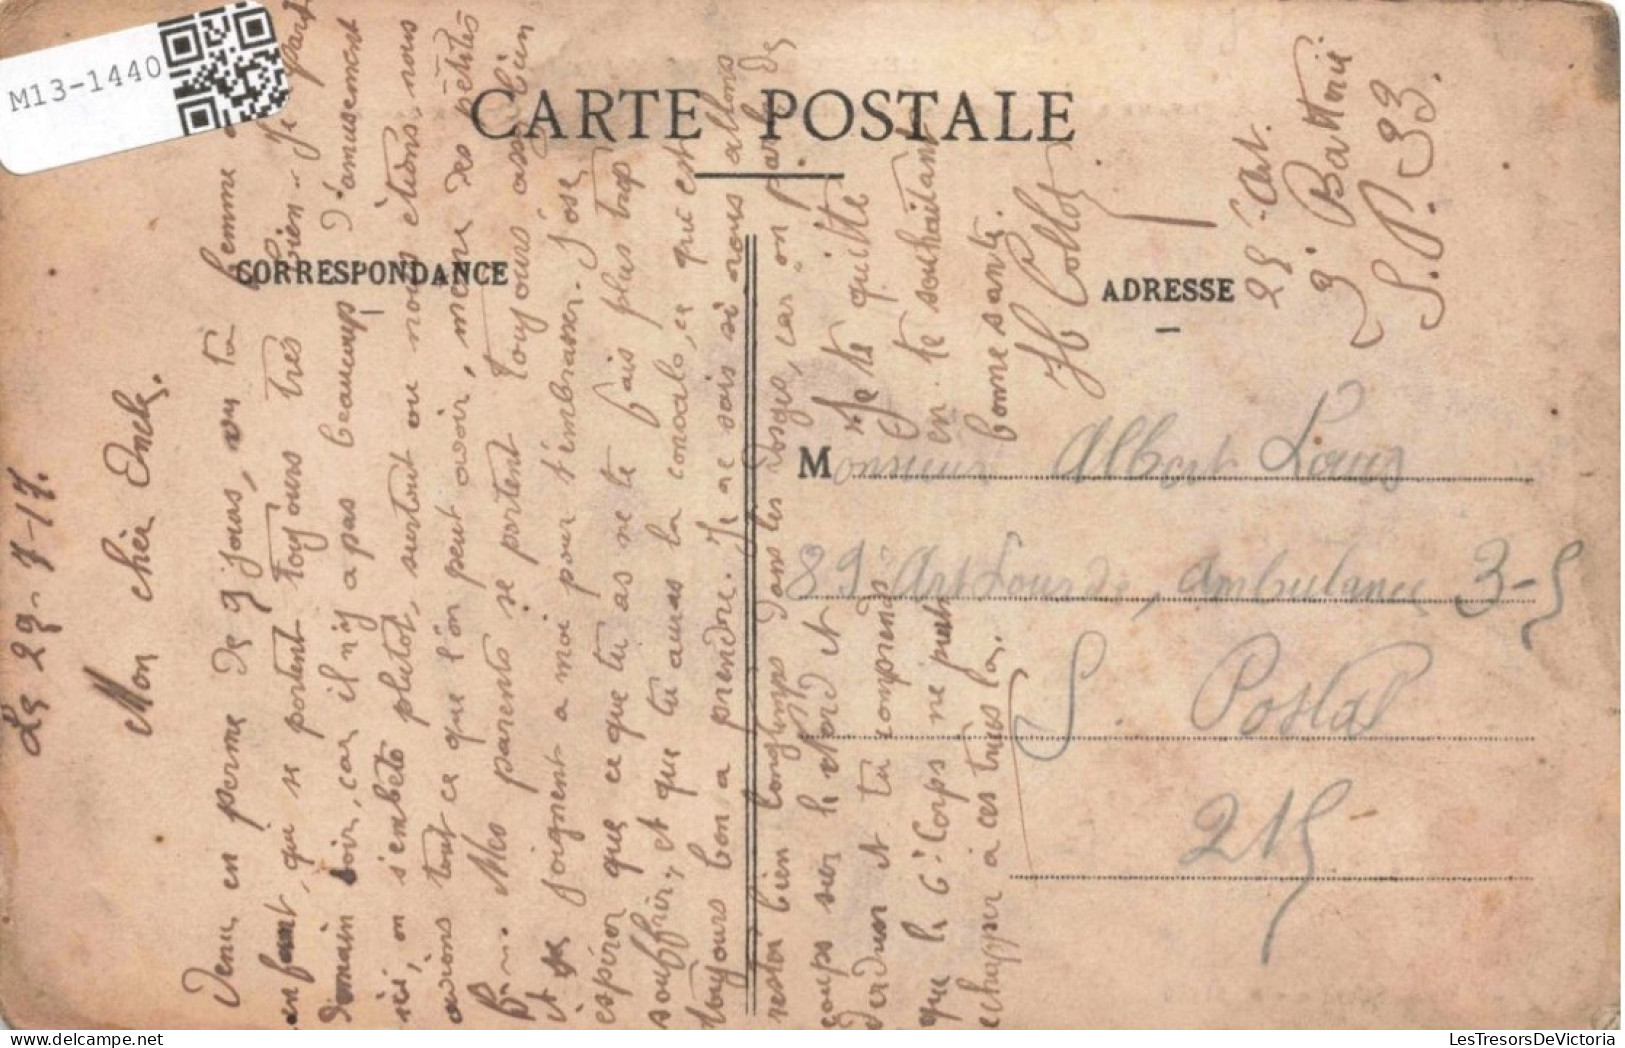 M13-1440
CARTE POSTALE
CORRESPONDANCE
ADRESSE
Le 29-7-17.
Mon chèr Oncle,
Venu en perme de 9 jours, vu ta femme
enfant, qui se portent toujours très bien. Je pars
demain soir, car il n'y a pas beaucoup d'amusement
ici, on s'embête plutot, surtout ou nous étions, nous
avions tout ce que l'on peut avoir, même des petites
Mes parents se portent toujours assez bien
et se joignent a moi pour t'embrasser. J'ose
espéror que ce que tu as ne te fais plus trop
souffrir, et que tu auras la convalo, ce qui est
toujours bon a prendre. Je ne sais si nous allons
rester bien longtemps dans les Vosges, car on parle de
coups sur le Nord et
Verdun et tu comprends
que le 6e Corps ne peut
echapper à ces trucs la.
Je te quitte
en te souhaitant
bonne santé.
H Collot
25e Art.
3e Batterie
S.P. 33.
Monsieur Albert Louis
89e Art Lourde, Ambulance 3-5
S. Postal
215
LesTresorsDeVictoria